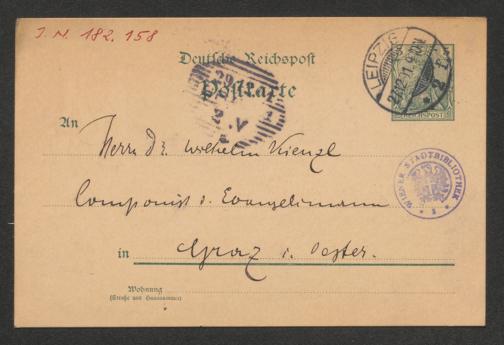 J. N. 182.158
Deutsche Reichspost
Postkarte
LEIPZIG
* 2 f.
REICHSPOST
29
2
An
Herrn Dr. Wilhelm Kienzl
Componist d. Evangelimann
WIENER STADTBIBLIOTHEK
in Graz i. Oester.
Wohnung
(Straße und Hausnummer)